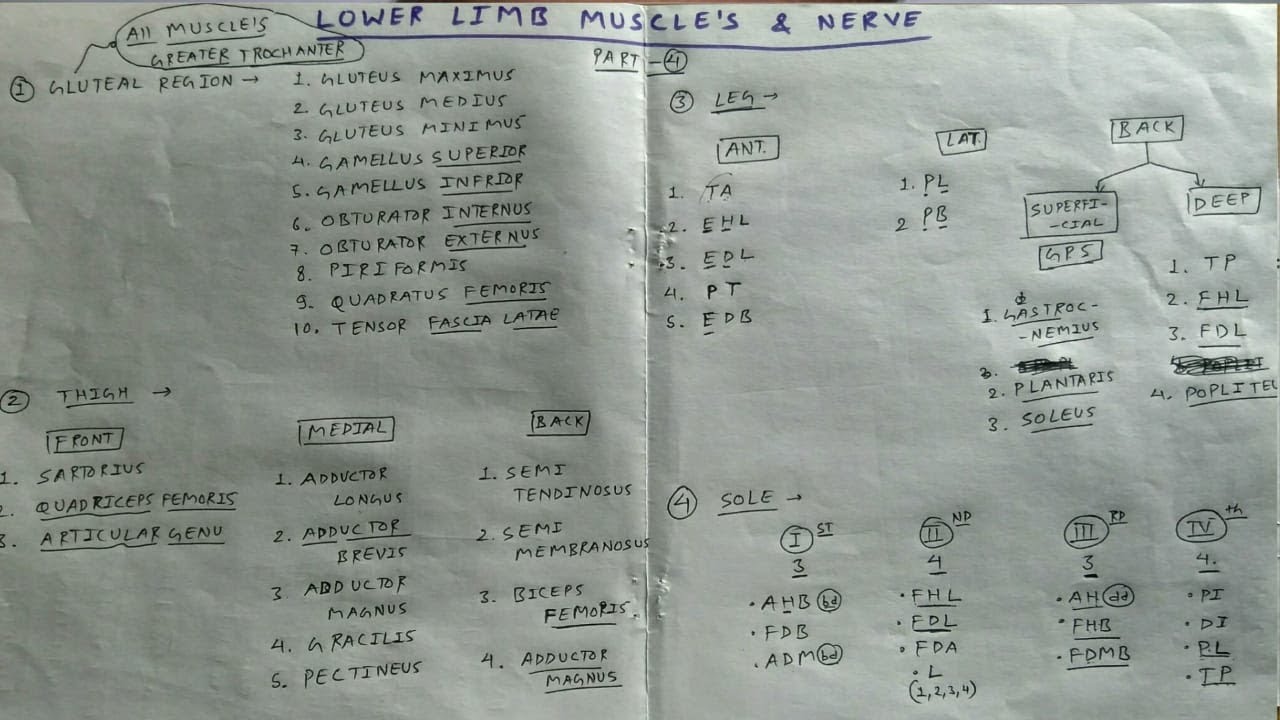 LOWER LIMB MUSCLE'S & NERVE
All MUSCLE'S
GREATER TROCHANTER
PART - 4
1 GLUTEAL REGION →
1. GLUTEUS MAXIMUS
2. GLUTEUS MEDIUS
3. GLUTEUS MINIMUS
4. GAMELLUS SUPERIOR
5. GAMELLUS INFRIOR
6. OBTURATOR INTERNUS
7. OBTURATOR EXTERNUS
8. PIRIFORMIS
9. QUADRATUS FEMORIS
10. TENSOR FASCIA LATAE
2 THIGH →
FRONT
1. SARTORIUS
2. QUADRICEPS FEMORIS
3. ARTICULAR GENU
MEDIAL
1. ADDUCTOR
LONGUS
2. ADDUCTOR
BREVIS
3 ADDUCTOR
MAGNUS
4. GRACILIS
5. PECTINEUS
BACK
1. SEMI
TENDINOSUS
2. SEMI
MEMBRANOSUS
3. BICEPS
FEMORIS.
4. ADDUCTOR
MAGNUS
3 LEG →
ANT.
1. TA
2. EHL
3. EDL
4. PT
5. EDB
LAT.
1. PL
2 PB
BACK
SUPERFI-
-CIAL
GPS
1. GASTROC-
-NEMIUS
3.
2. PLANTARIS
3. SOLEUS
DEEP
1. TP
2. FHL
3. FDL
4. POPLITEU
4 SOLE →
I ST
3
• AHB bd
• FDB
• ADM bd
II ND
4
• FHL
• FDL
• FDA
• L
(1,2,3,4)
III RD
3
• AH dd
• FHB
• FDMB
IV th
4.
• PI
• DI
• PL
• TP